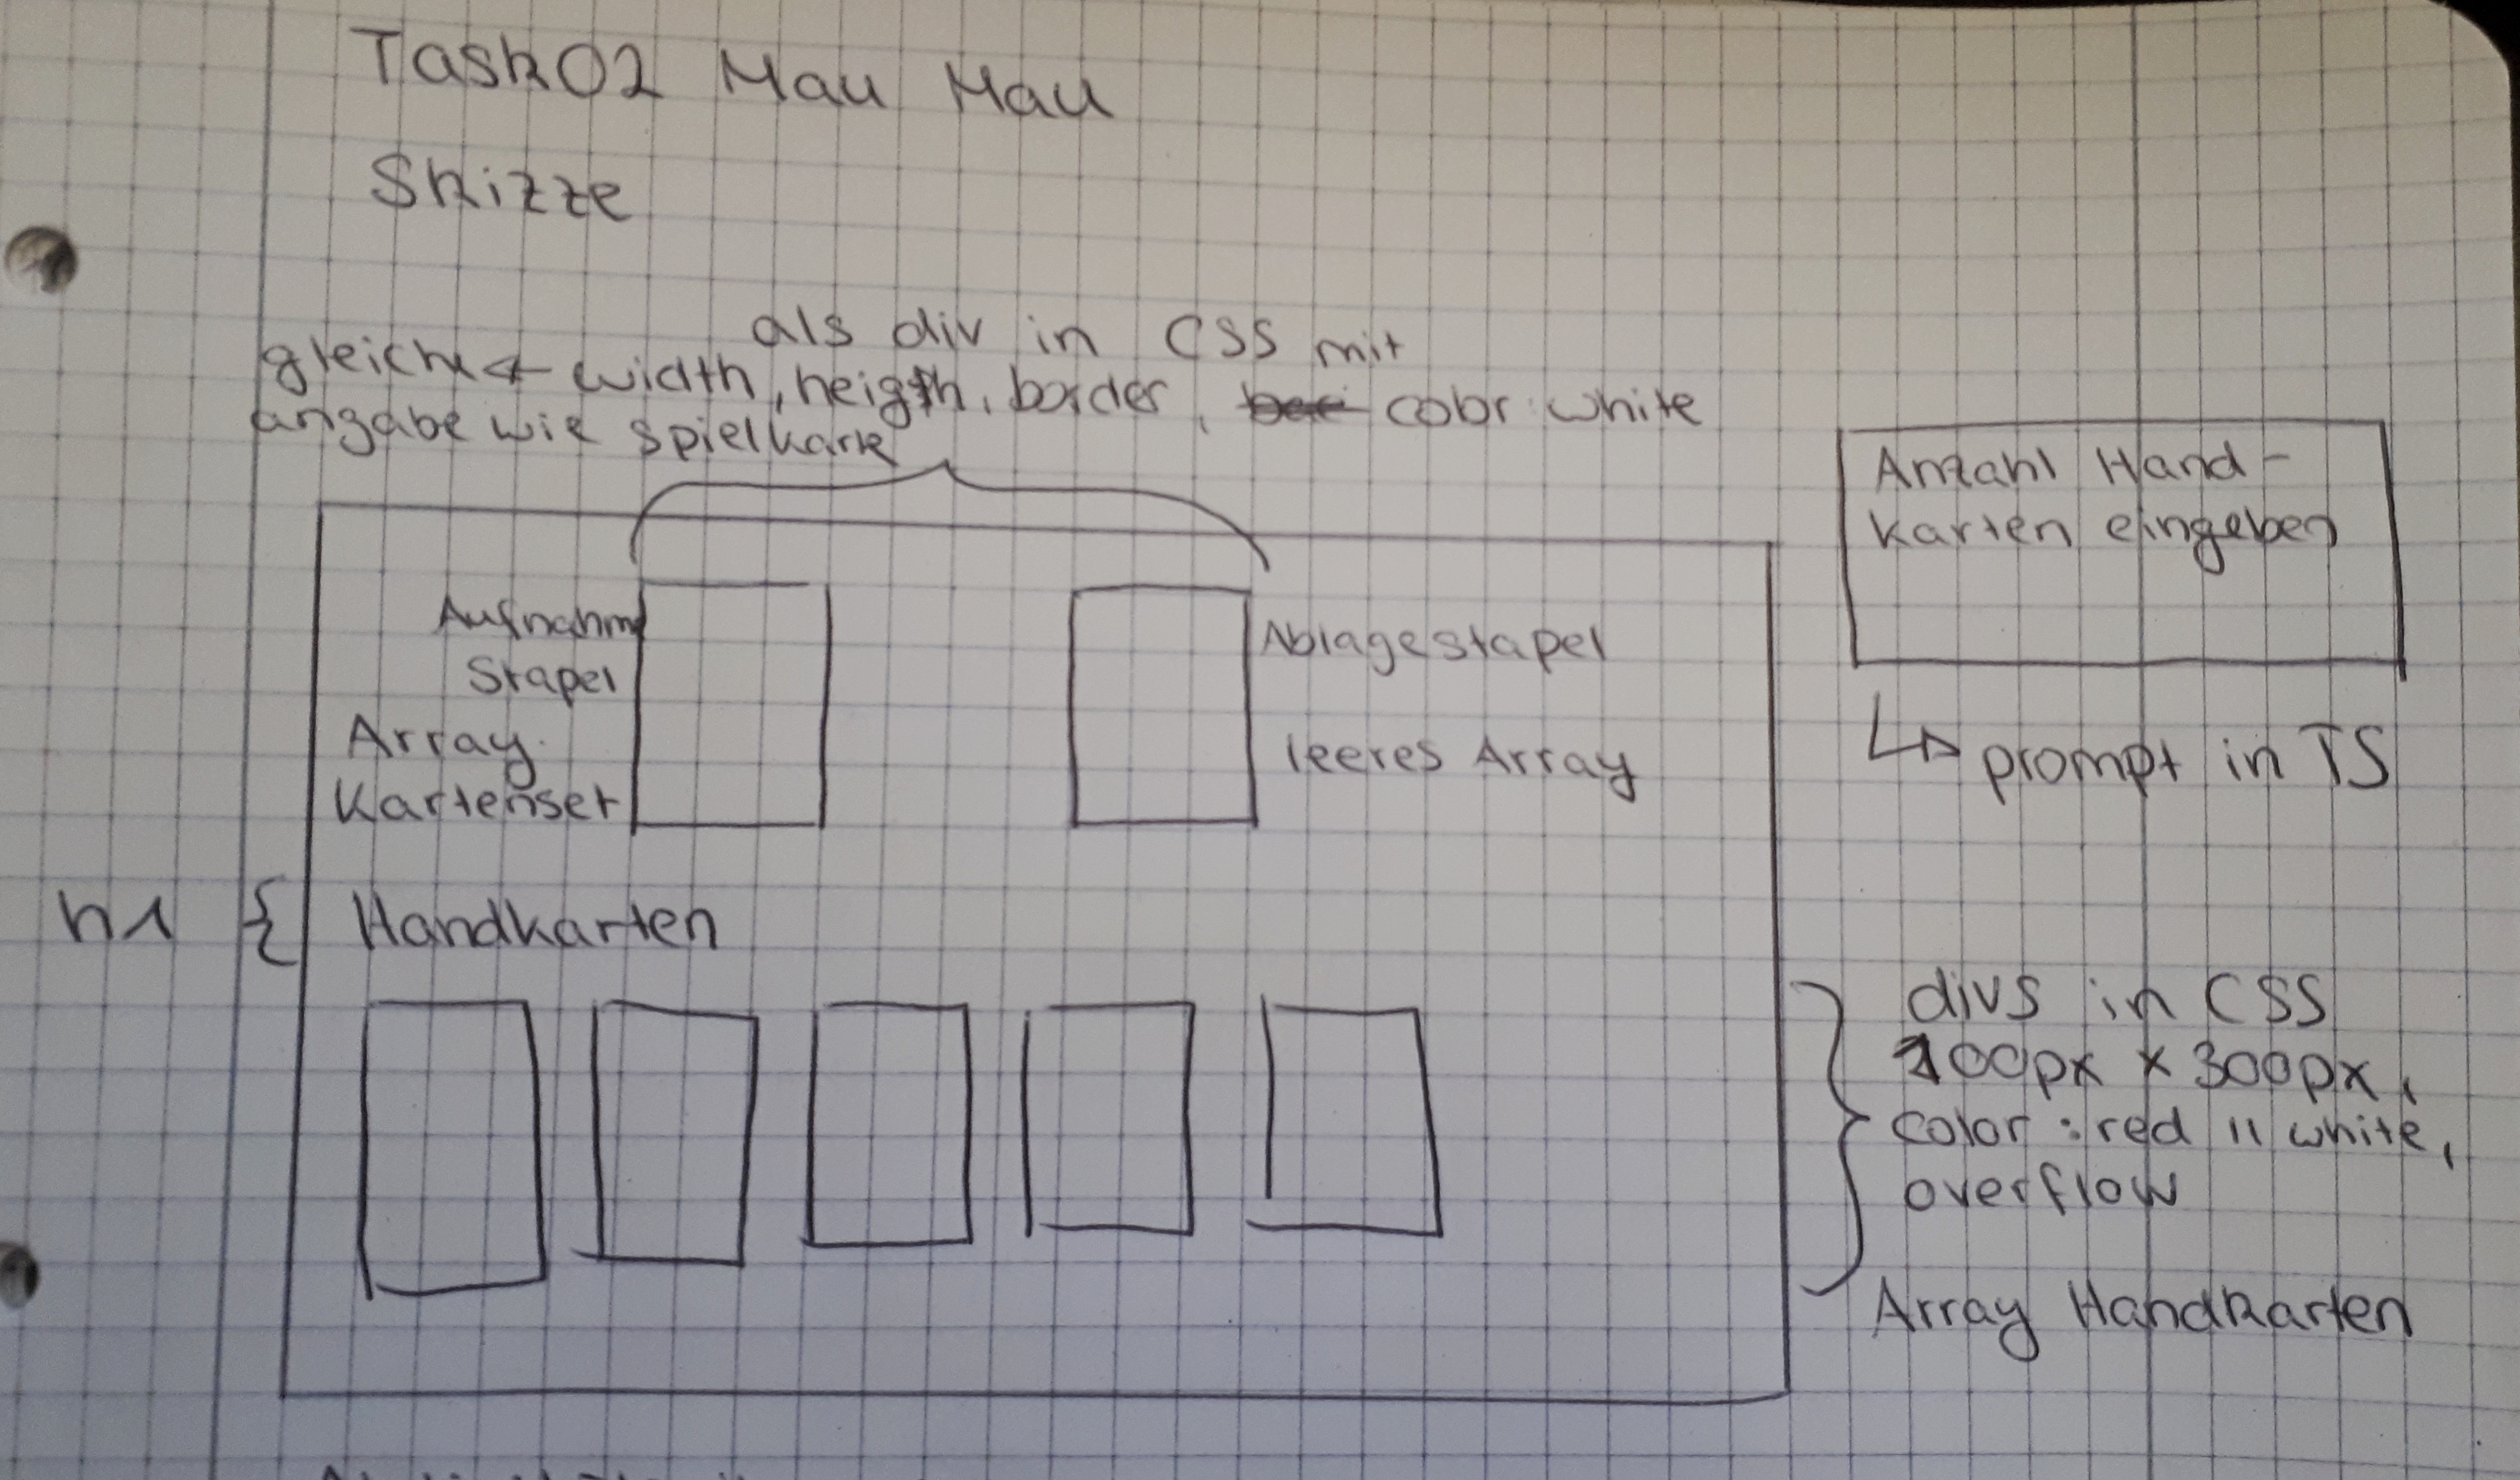 Task02 Mau Mau
Skizze
als div in CSS mit
gleiche width, heigth, border, color: white
angabe wie spielkarte
Anzahl Hand-
karten eingeben
prompt in TS
Aufnahm
Stapel
Array
Kartenset
Ablagestapel
leeres Array
h1 { Handkarten
divs in CSS
200px x 300px,
color: red || white,
overflow
Array Handkarten